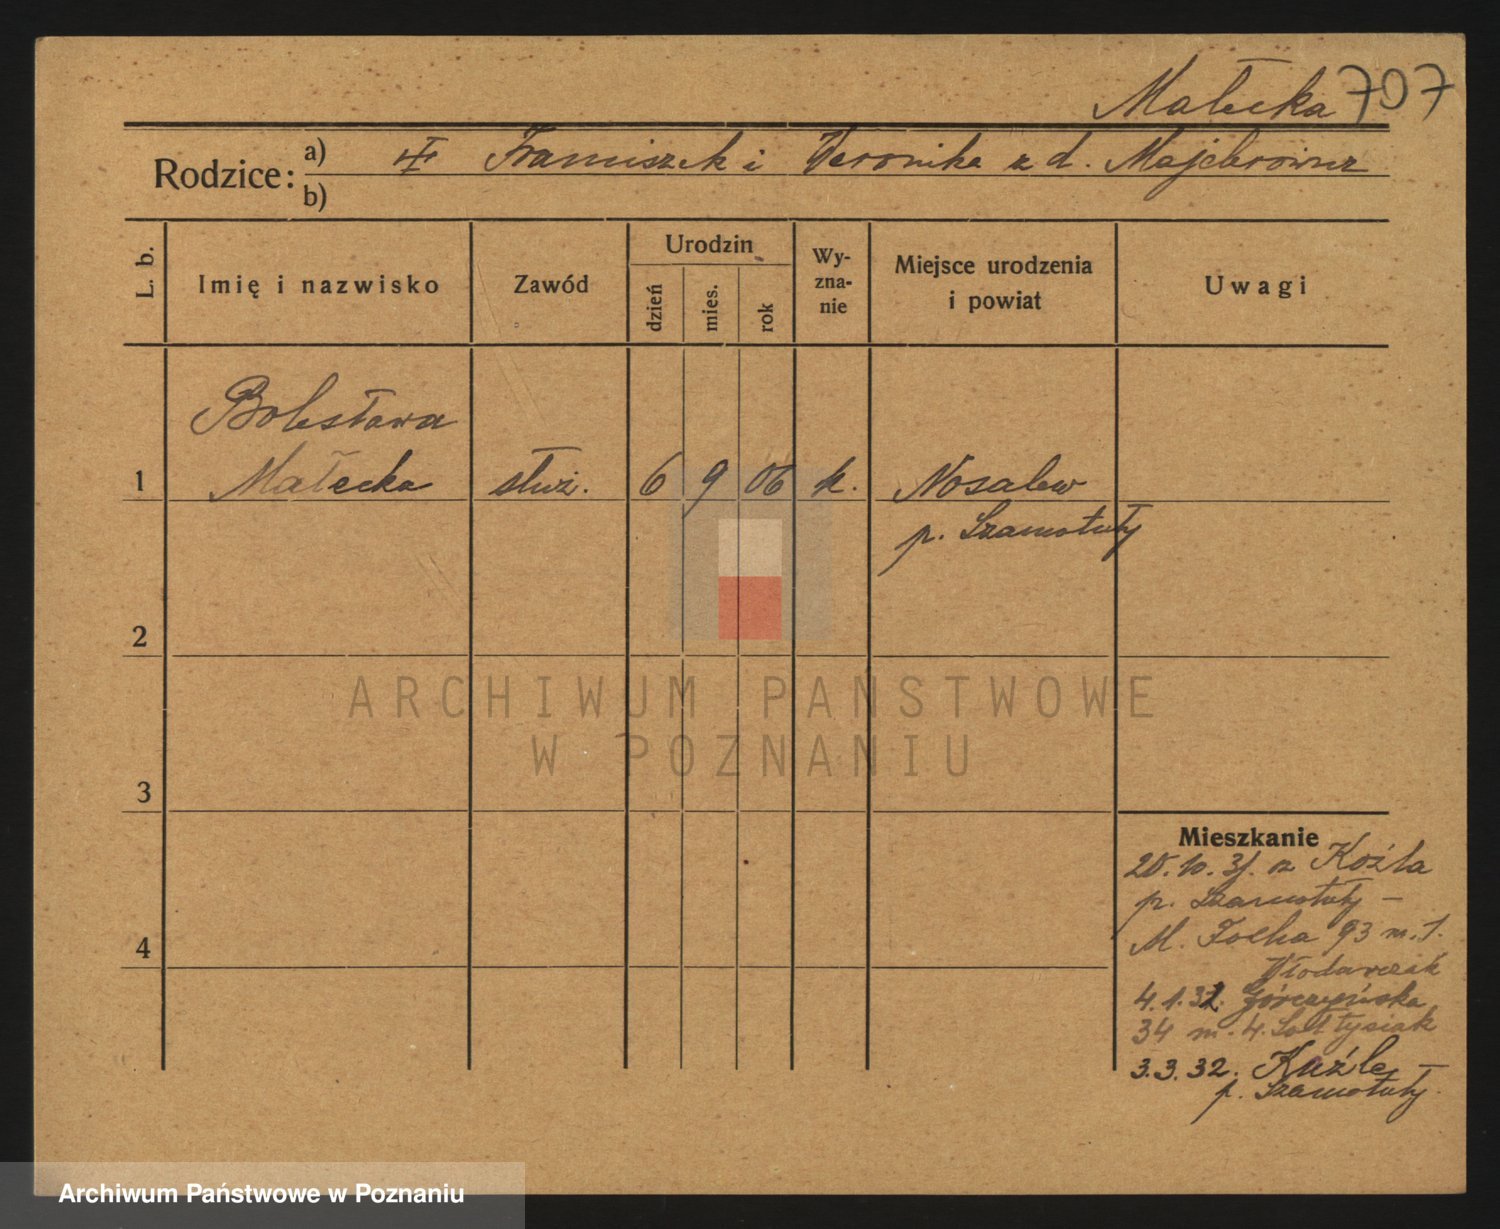 Małecka 707
Rodzice: a) Franciszek i Weronika z d. Majchrowicz
b)
L. b.
Imię i nazwisko
Zawód
Urodzin
dzień mies. rok
Wy-
zna-
nie
Miejsce urodzenia
i powiat
Uwagi
Bolesława
1 Małecka służ. 6 9 06 k. Nosalew
p. Szamotuły
2
ARCHIWUM PAŃSTWOWE
W POZNANIU
3
Mieszkanie
20.10.31. z Koźla
p. Szamotuły –
M. Focha 93 m. 1.
4 Włodarczak
4.1.32. Górczyńska
34 m. 4. Sołtysiak
3.3.32. Kuźle –
p. Szamotuły.
Archiwum Państwowe w Poznaniu